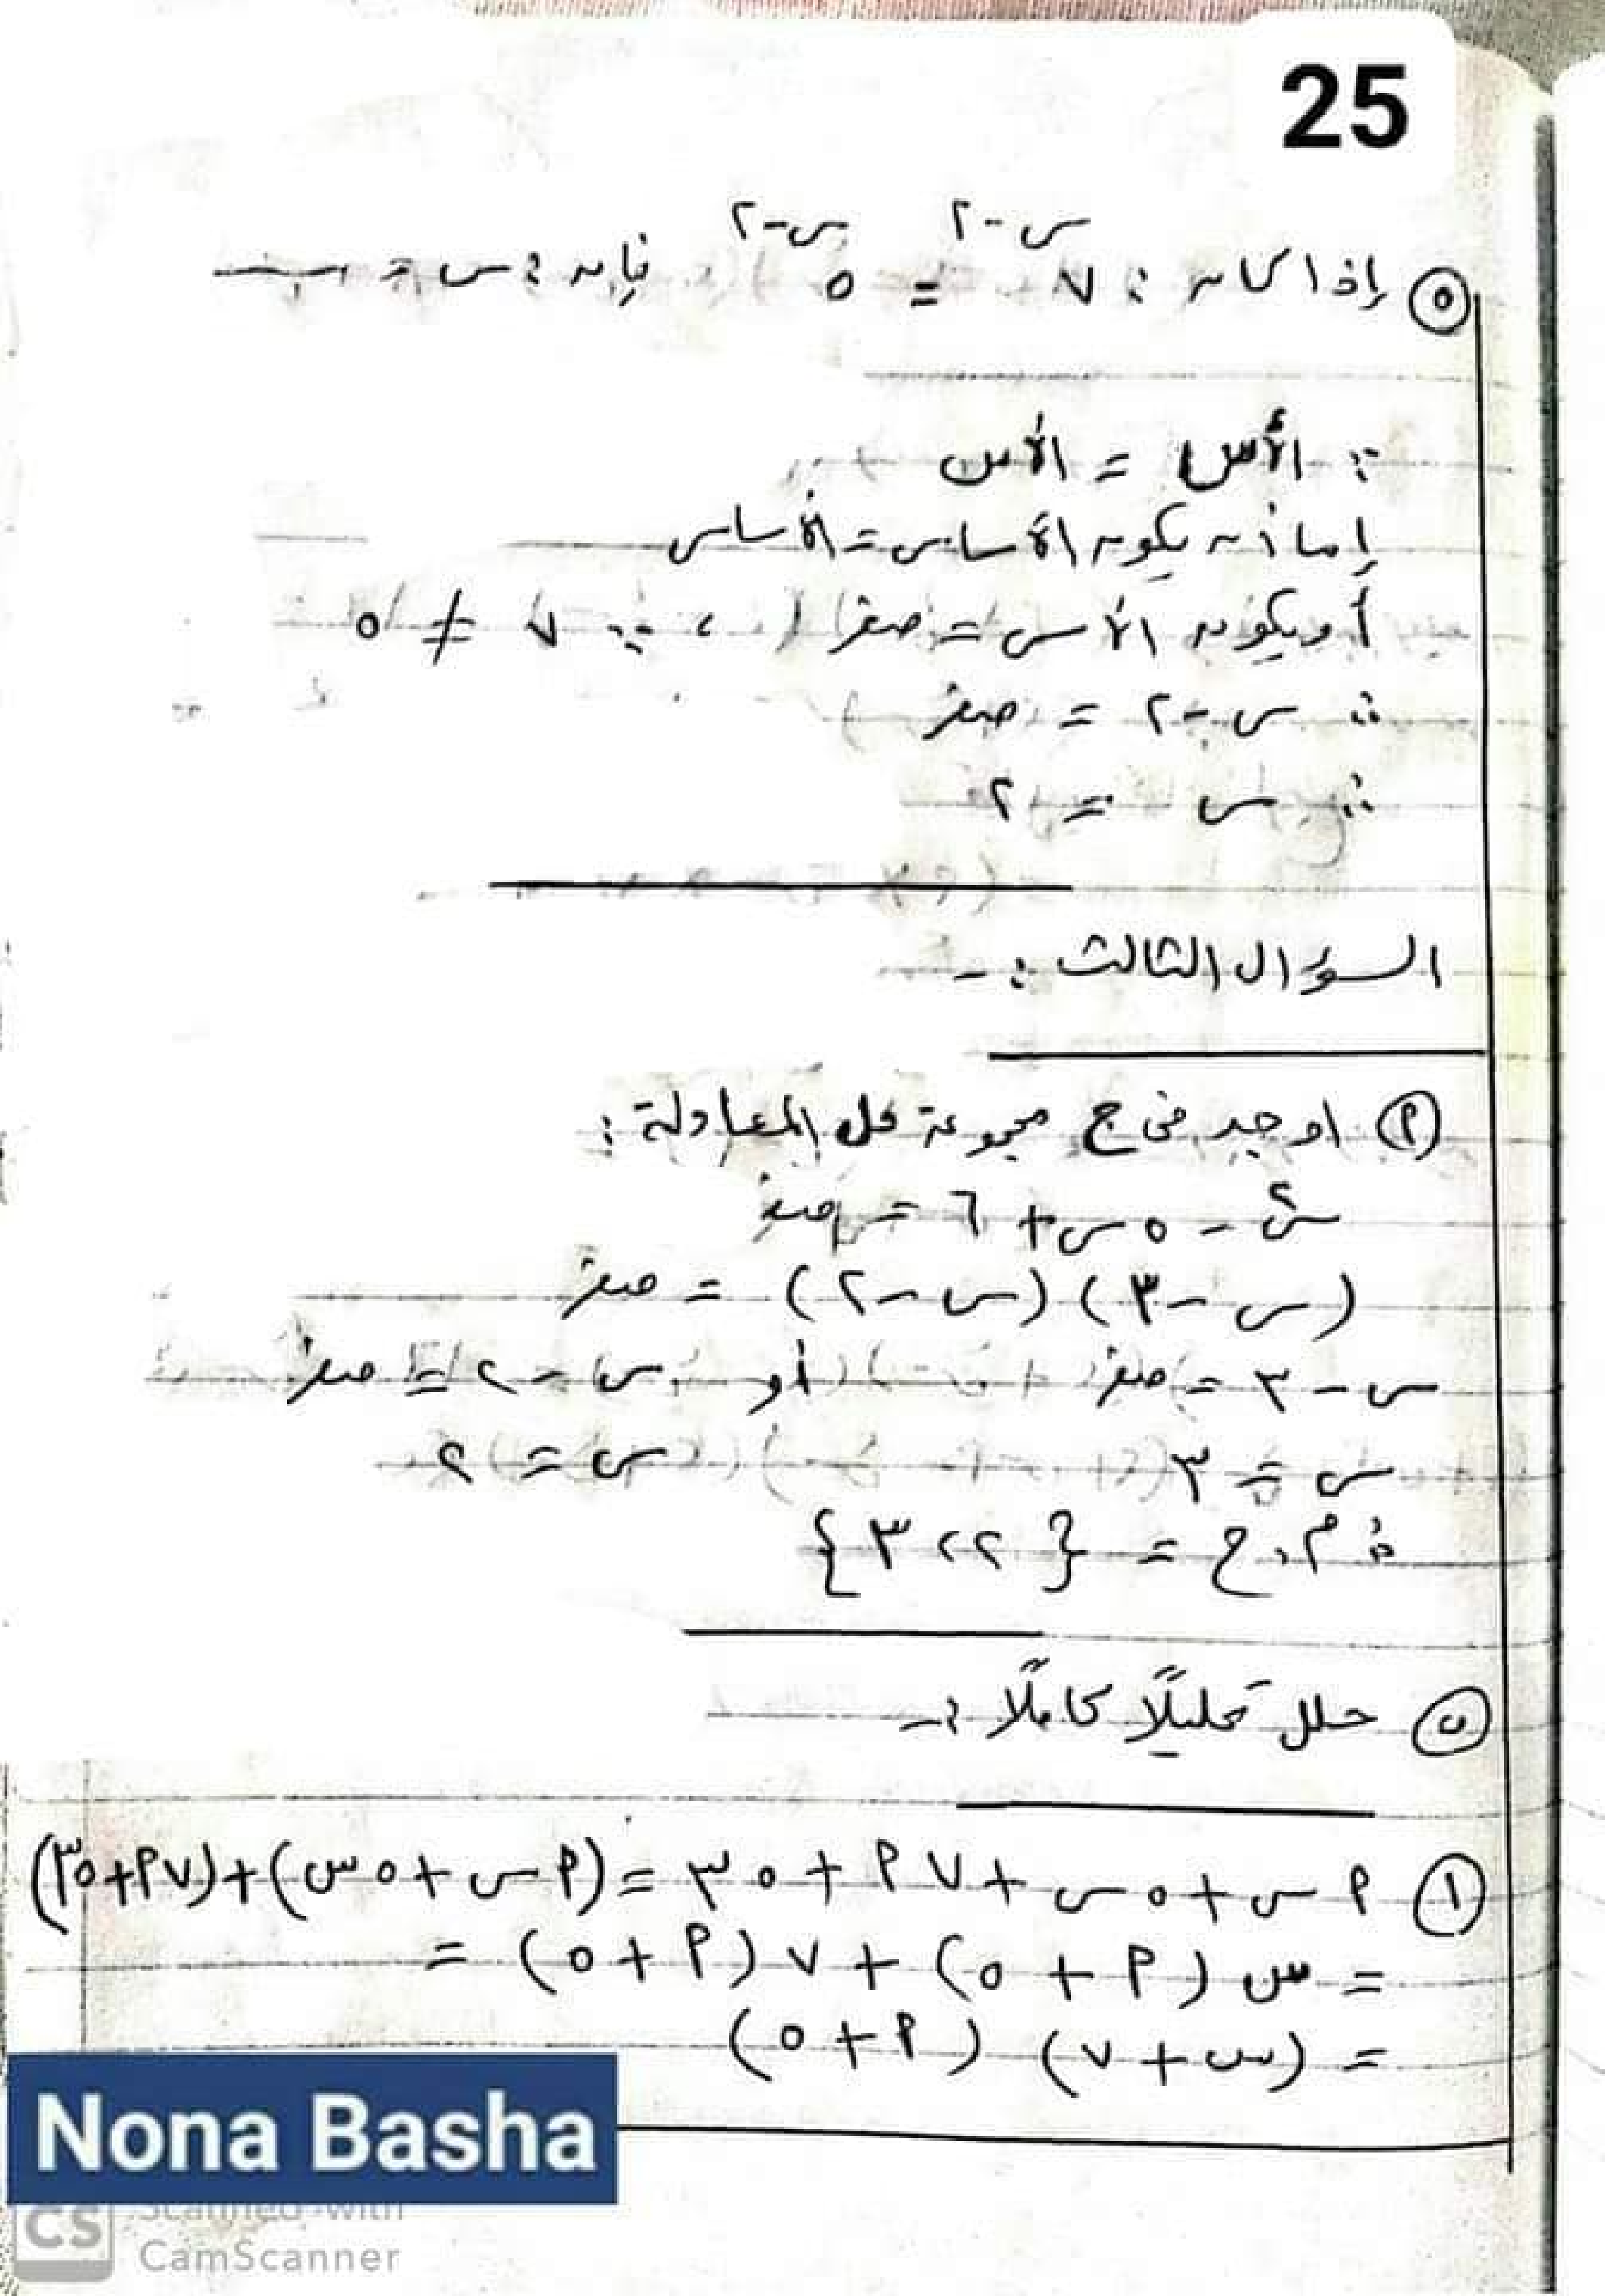 25
⑤ إذا كان : ٧^(س-٢) = ٥^(س-٢) فإن : س = ـــــ
∵ الأس = الأس
إما أن يكون الأساس = الأساس
أو يكون الأس = صفر ، ∵ ٧ ≠ ٥
∴ س - ٢ = صفر
∴ س = ٢
السؤال الثالث :-
(٩) اوجد فى ح مجموعة حل المعادلة :
س² - ٥س + ٦ = صفر
(س - ٣) (س - ٢) = صفر
س - ٣ = صفر أو س - ٢ = صفر
س = ٣ س = ٢
∴ م.ح = {٢ ، ٣}
(ب) حلل تحليلًا كاملًا :-
① ٩ س + ٥ س + ٧ ٩ + ٣٥ = (٩ س + ٥ س) + (٧ ٩ + ٣٥)
= س (٩ + ٥) + ٧ (٩ + ٥) =
= (س + ٧) (٩ + ٥)
Nona Basha
CS Scanned with
CamScanner